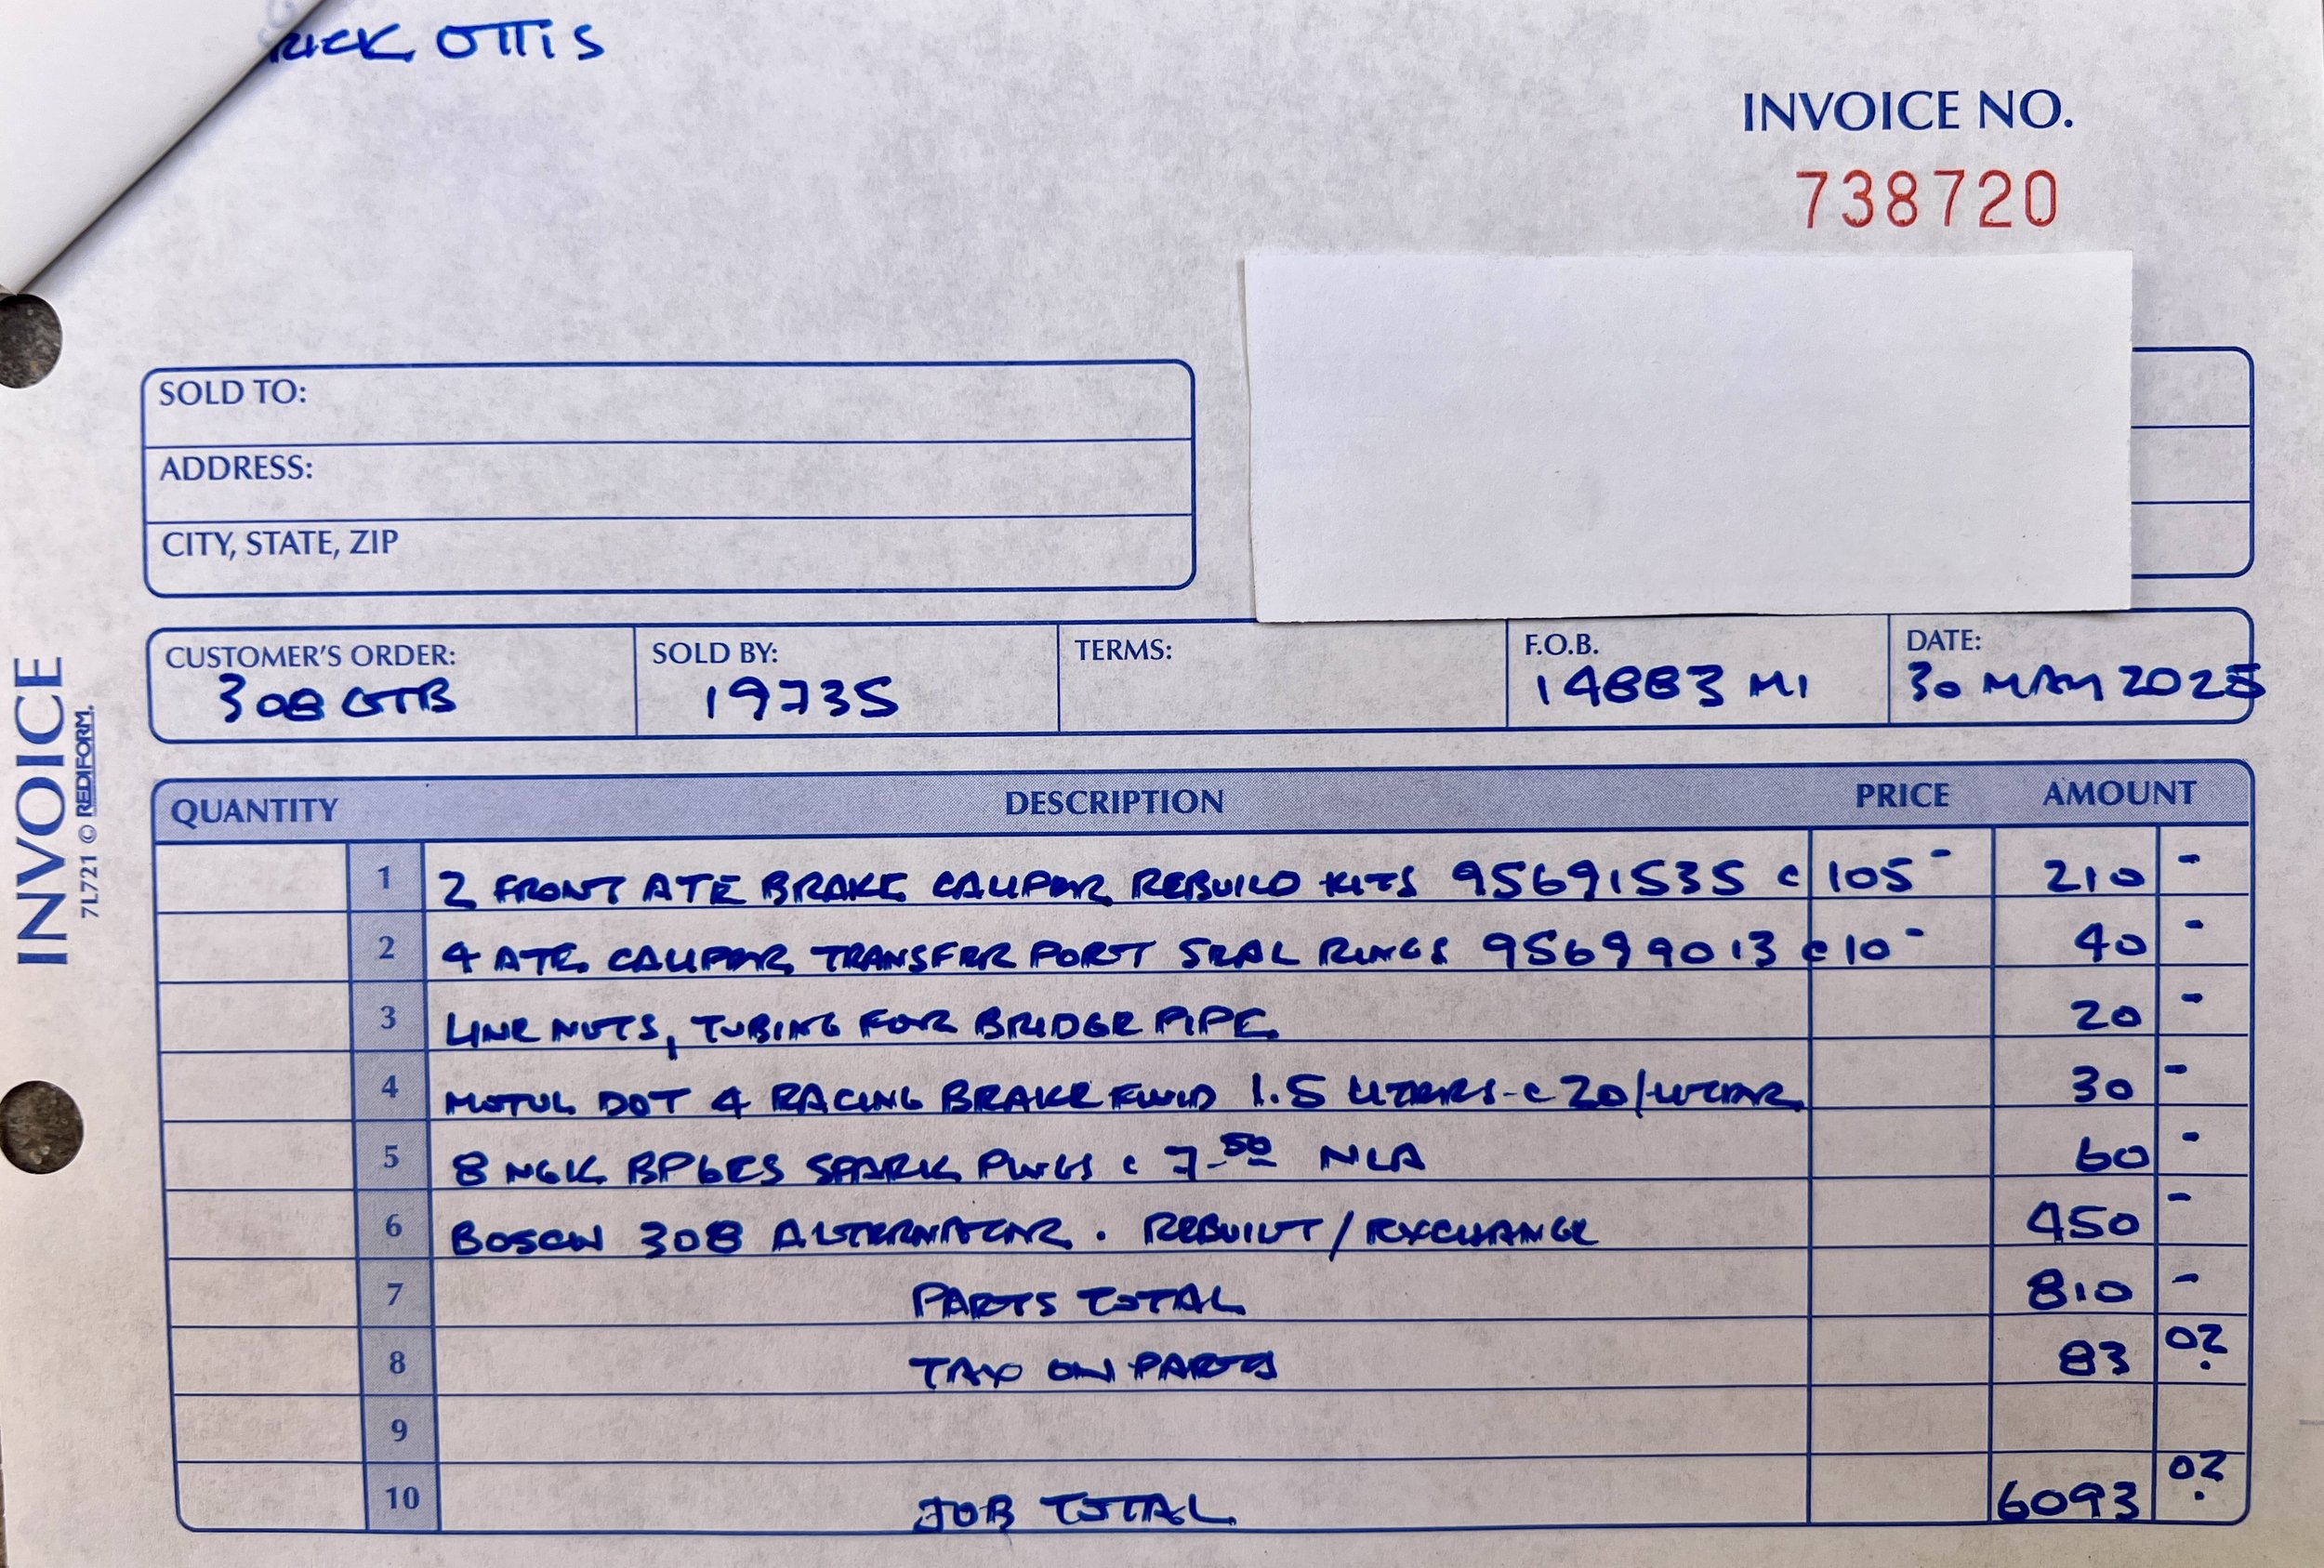 RICK OTTIS
INVOICE NO.
738720
SOLD TO:
ADDRESS:
CITY, STATE, ZIP
CUSTOMER'S ORDER: SOLD BY: TERMS: F.O.B. DATE:
308 GTB 19735 14883 MI 30 MAY 2025
INVOICE
7L721 © REDIFORM.
QUANTITY DESCRIPTION PRICE AMOUNT
1 2 FRONT ATE BRAKE CALIPER REBUILD KITS 95691535 @ 105 - 210 -
2 4 ATE CALIPER TRANSFER PORT SEAL RINGS 95699013 @ 10 - 40 -
3 LINE NUTS, TUBING FOR BRIDGE PIPE 20 -
4 MOTUL DOT 4 RACING BRAKE FLUID 1.5 LITERS - @ 20/LITER 30 -
5 8 NGK BP6ES SPARK PLUGS @ 7.50 NLA 60 -
6 BOSCH 308 ALTERNATOR. REBUILT/EXCHANGE 450 -
7 PARTS TOTAL 810 -
8 TAX ON PARTS 83 02
9
10 JOB TOTAL 6093 02